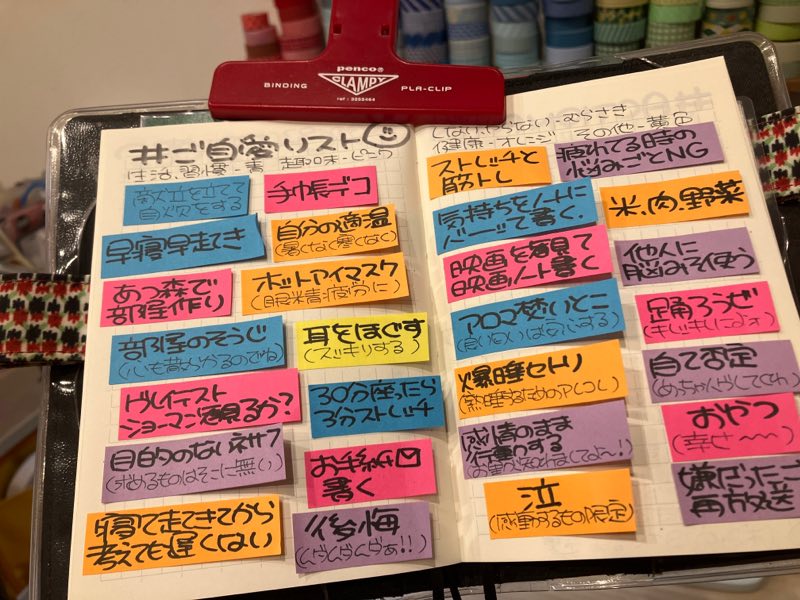 penco®
BINDING CLAMPY PLA-CLIP
#ご自愛リスト
生活、習慣-青 趣味-ピンク
献立を立てて
自炊をする
手帳デコ
早寝早起き
自分の適温
(暑くなく寒くなく)
あつ森で
部屋作り
ホットアイマスク
(眼精疲労に)
部屋のそうじ
(心も散らかるのでね)
耳をほぐす
(スッキリする)
グレイテスト
ショーマン観るか?
30分座ったら
3分ストレッチ
目的のないネサフ
(求めるものはそこに無い)
お手紙
書く
寝て起きてから
考えても遅くはない
後悔
しない、やらない-むらさき
健康-オレンジ その他-黄色
ストレッチと
筋トレ
疲れてる時の
悩みごとNG
気持ちをノートに
書く、
米、肉、野菜
映画を観て
映画ノート書く
他人に
脳みそ使う
アロマ焚いとこ
(良いにおいはあいする)
踊ろうぜ
爆睡セトリ
(熟睡するためのアレコレ)
自己否定
感情のまま
行動する
おやつ
(幸せ〜〜)
泣
(感動するもの限定)
嫌だったこと
再放送